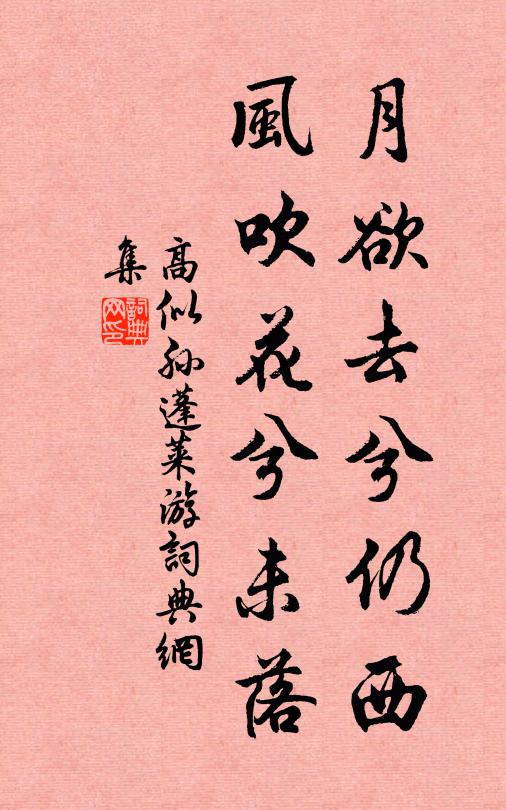 月欲去兮仍西
風吹花兮未落
高似孫蓬萊游詞典網
集
詞典
网印